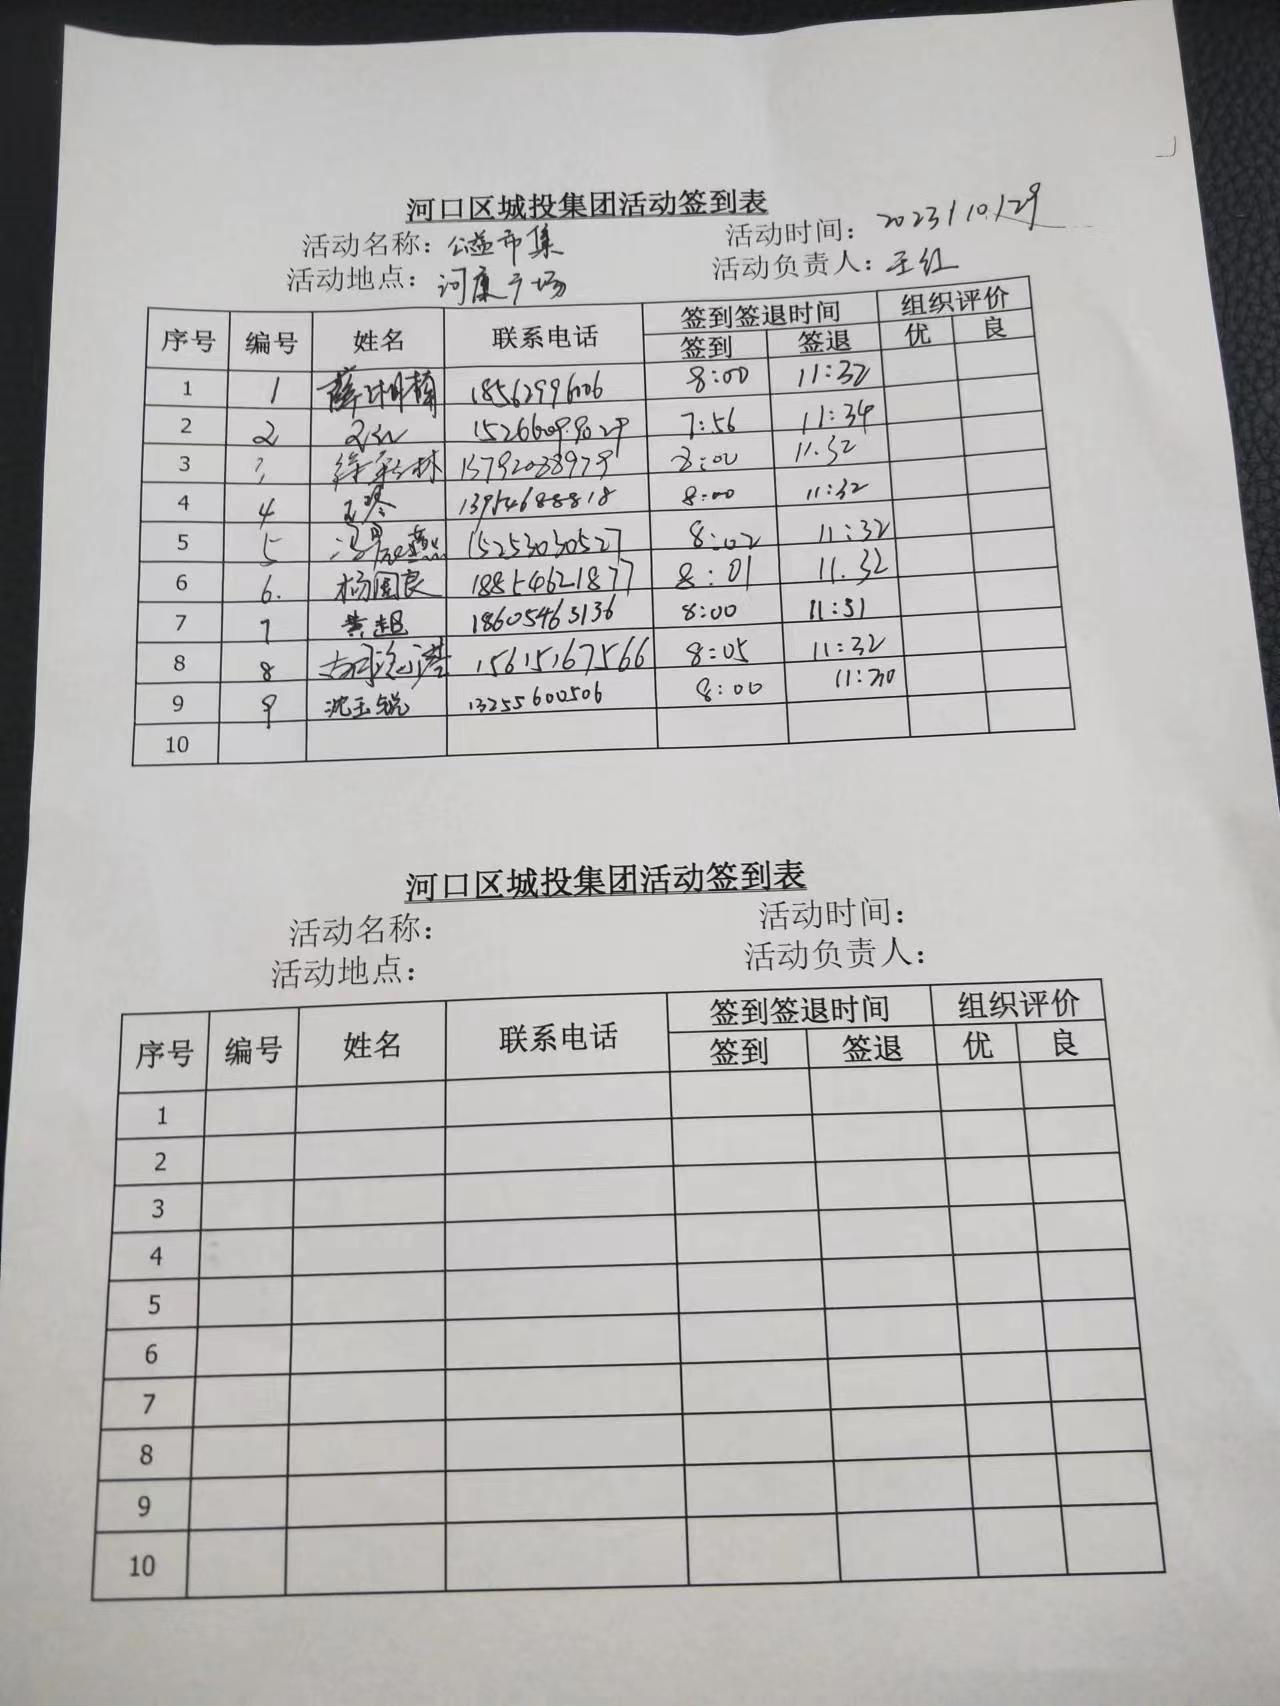 河口区城投集团活动签到表
活动名称：公益市集 活动时间：2023/10/29
活动地点：河康广场 活动负责人：王红
序号 编号 姓名 联系电话 签到签退时间 组织评价
签到 签退 优 良
1 1 18562996006 8:00 11:32
2 2 王红 15266099029 7:56 11:34
3 3 林 8:00 11.32
4 4 王琴 13954688818 8:00 11:32
5 5 燕 15253030527 8:02 11:32
6 6. 杨国良 18854621877 8:01 11.32
7 7 黄超 18605463136 8:00 11:31
8 8 15615167566 8:05 11:32
9 9 沈玉锐 13255600506 8:00 11:30
10
河口区城投集团活动签到表
活动名称： 活动时间：
活动地点： 活动负责人：
序号 编号 姓名 联系电话 签到签退时间 组织评价
签到 签退 优 良
1
2
3
4
5
6
7
8
9
10